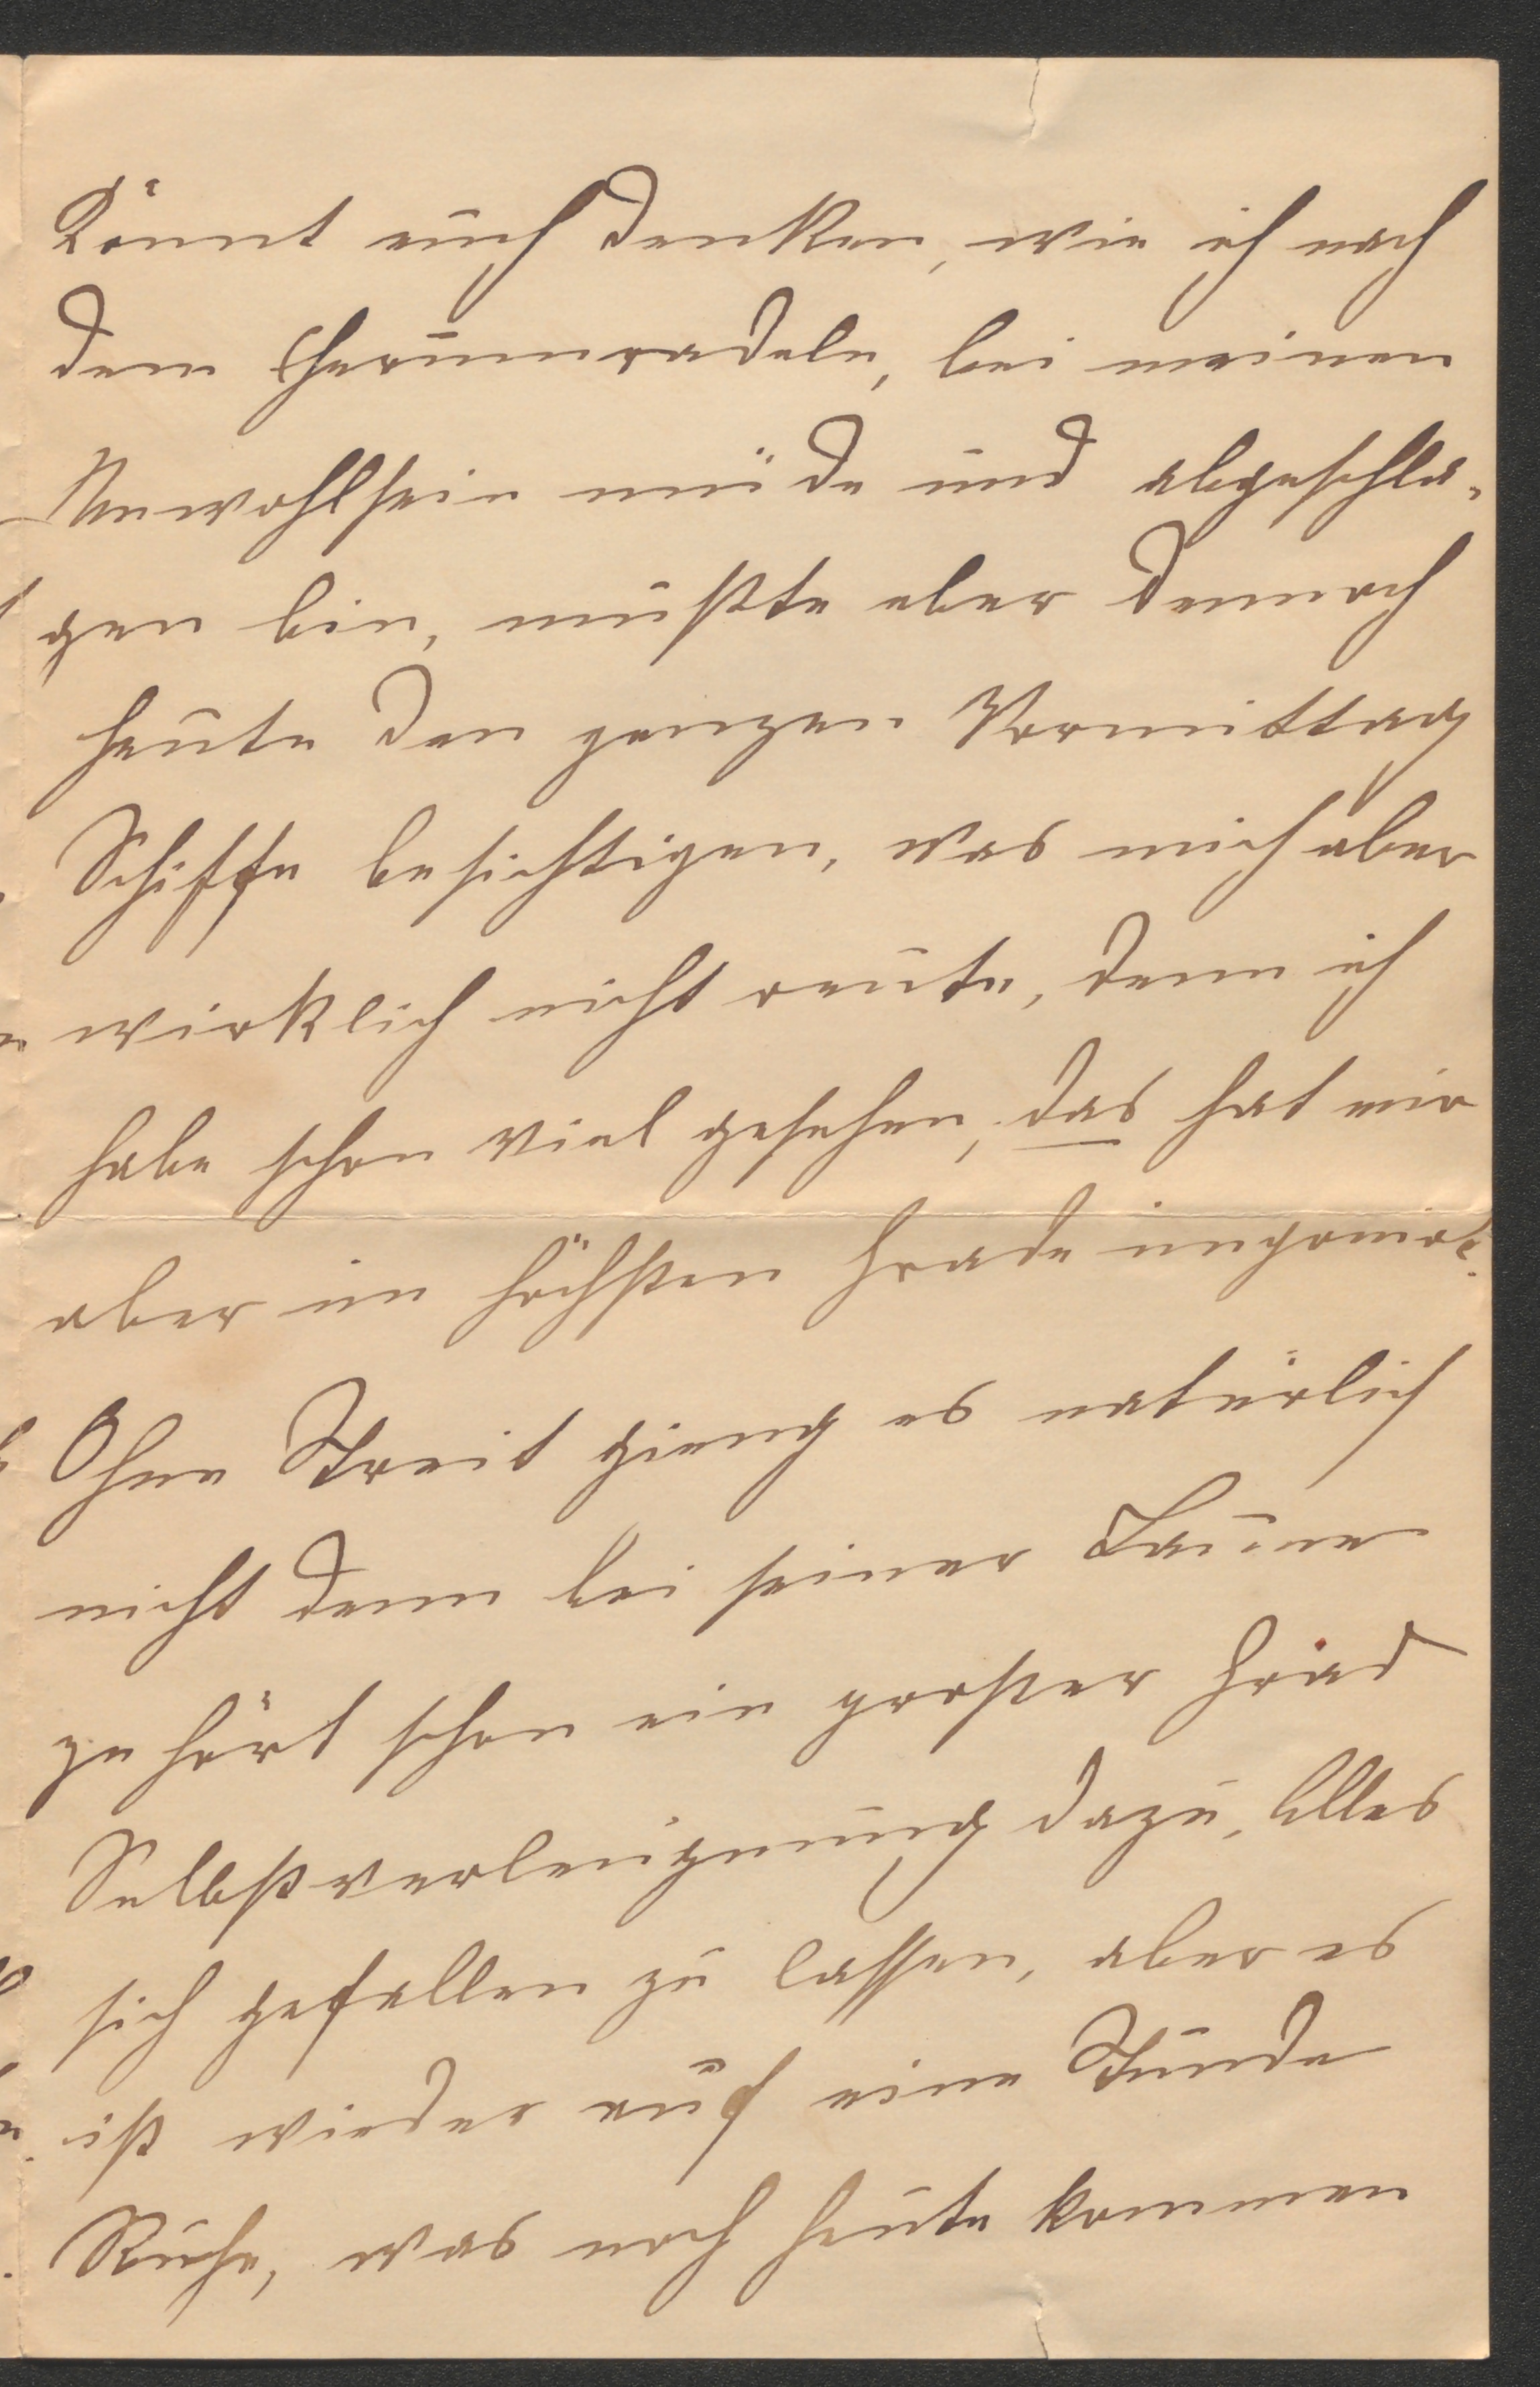 Könnt euch denken, wie ich nach
dem Herumradeln, bei meinen
Unwohlsein müde und abgeschla-
gen bin, mußte aber dennoch
heute den ganzen Vormittag
Schiffe besichtigen, was mich aber
wirklich nicht reute, denn ich
habe schon viel gesehen, das hat mir
aber im höchsten Grade imponirt.
Ohne Streit gieng es natürlich
nicht denn bei seiner Laune
gehört schon ein großer Grad
Selbstverleugnung dazu, Alles
sich gefallen zu lassen, aber es
ist wieder auf eine Stunde
Ruhe, was noch heute kommen